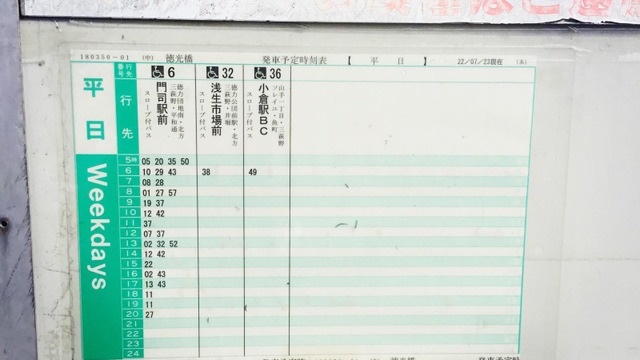 180350-01 (中) 徳光橋 発車予定時刻表 【 平 日 】 22/07/23現在 (木)
平日
Weekdays
行先番号 6 32 36
行先 門司駅前 浅生市場前 小倉駅BC
徳力団地南・北方
三萩野・平和通
スロープ付バス
徳力公団前駅・北方
三萩野・井堀
スロープ付バス
山手一丁目・三萩野
ソレイユ・魚町
スロープ付バス
5時 05 20 35 50
6 10 29 43 38 49
7 08 28
8 01 27 57
9 19 37
10 12 42
11 37
12 07 37
13 02 32 52
14 12 42
15 22
16 02 43
17 13 43
18 11
19 11
20 27
21
22
23
24